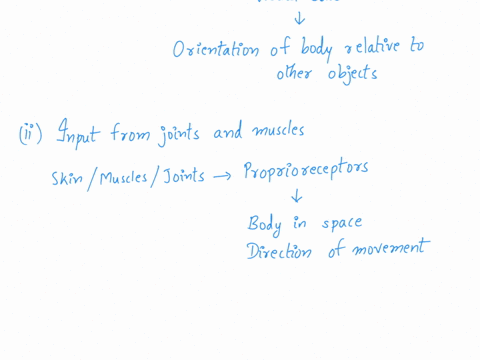 ↓
Orientation of body relative to
other objects
(ii) Input from joints and muscles
Skin/Muscles/Joints → Proprioreceptors
↓
Body in space
Direction of movement